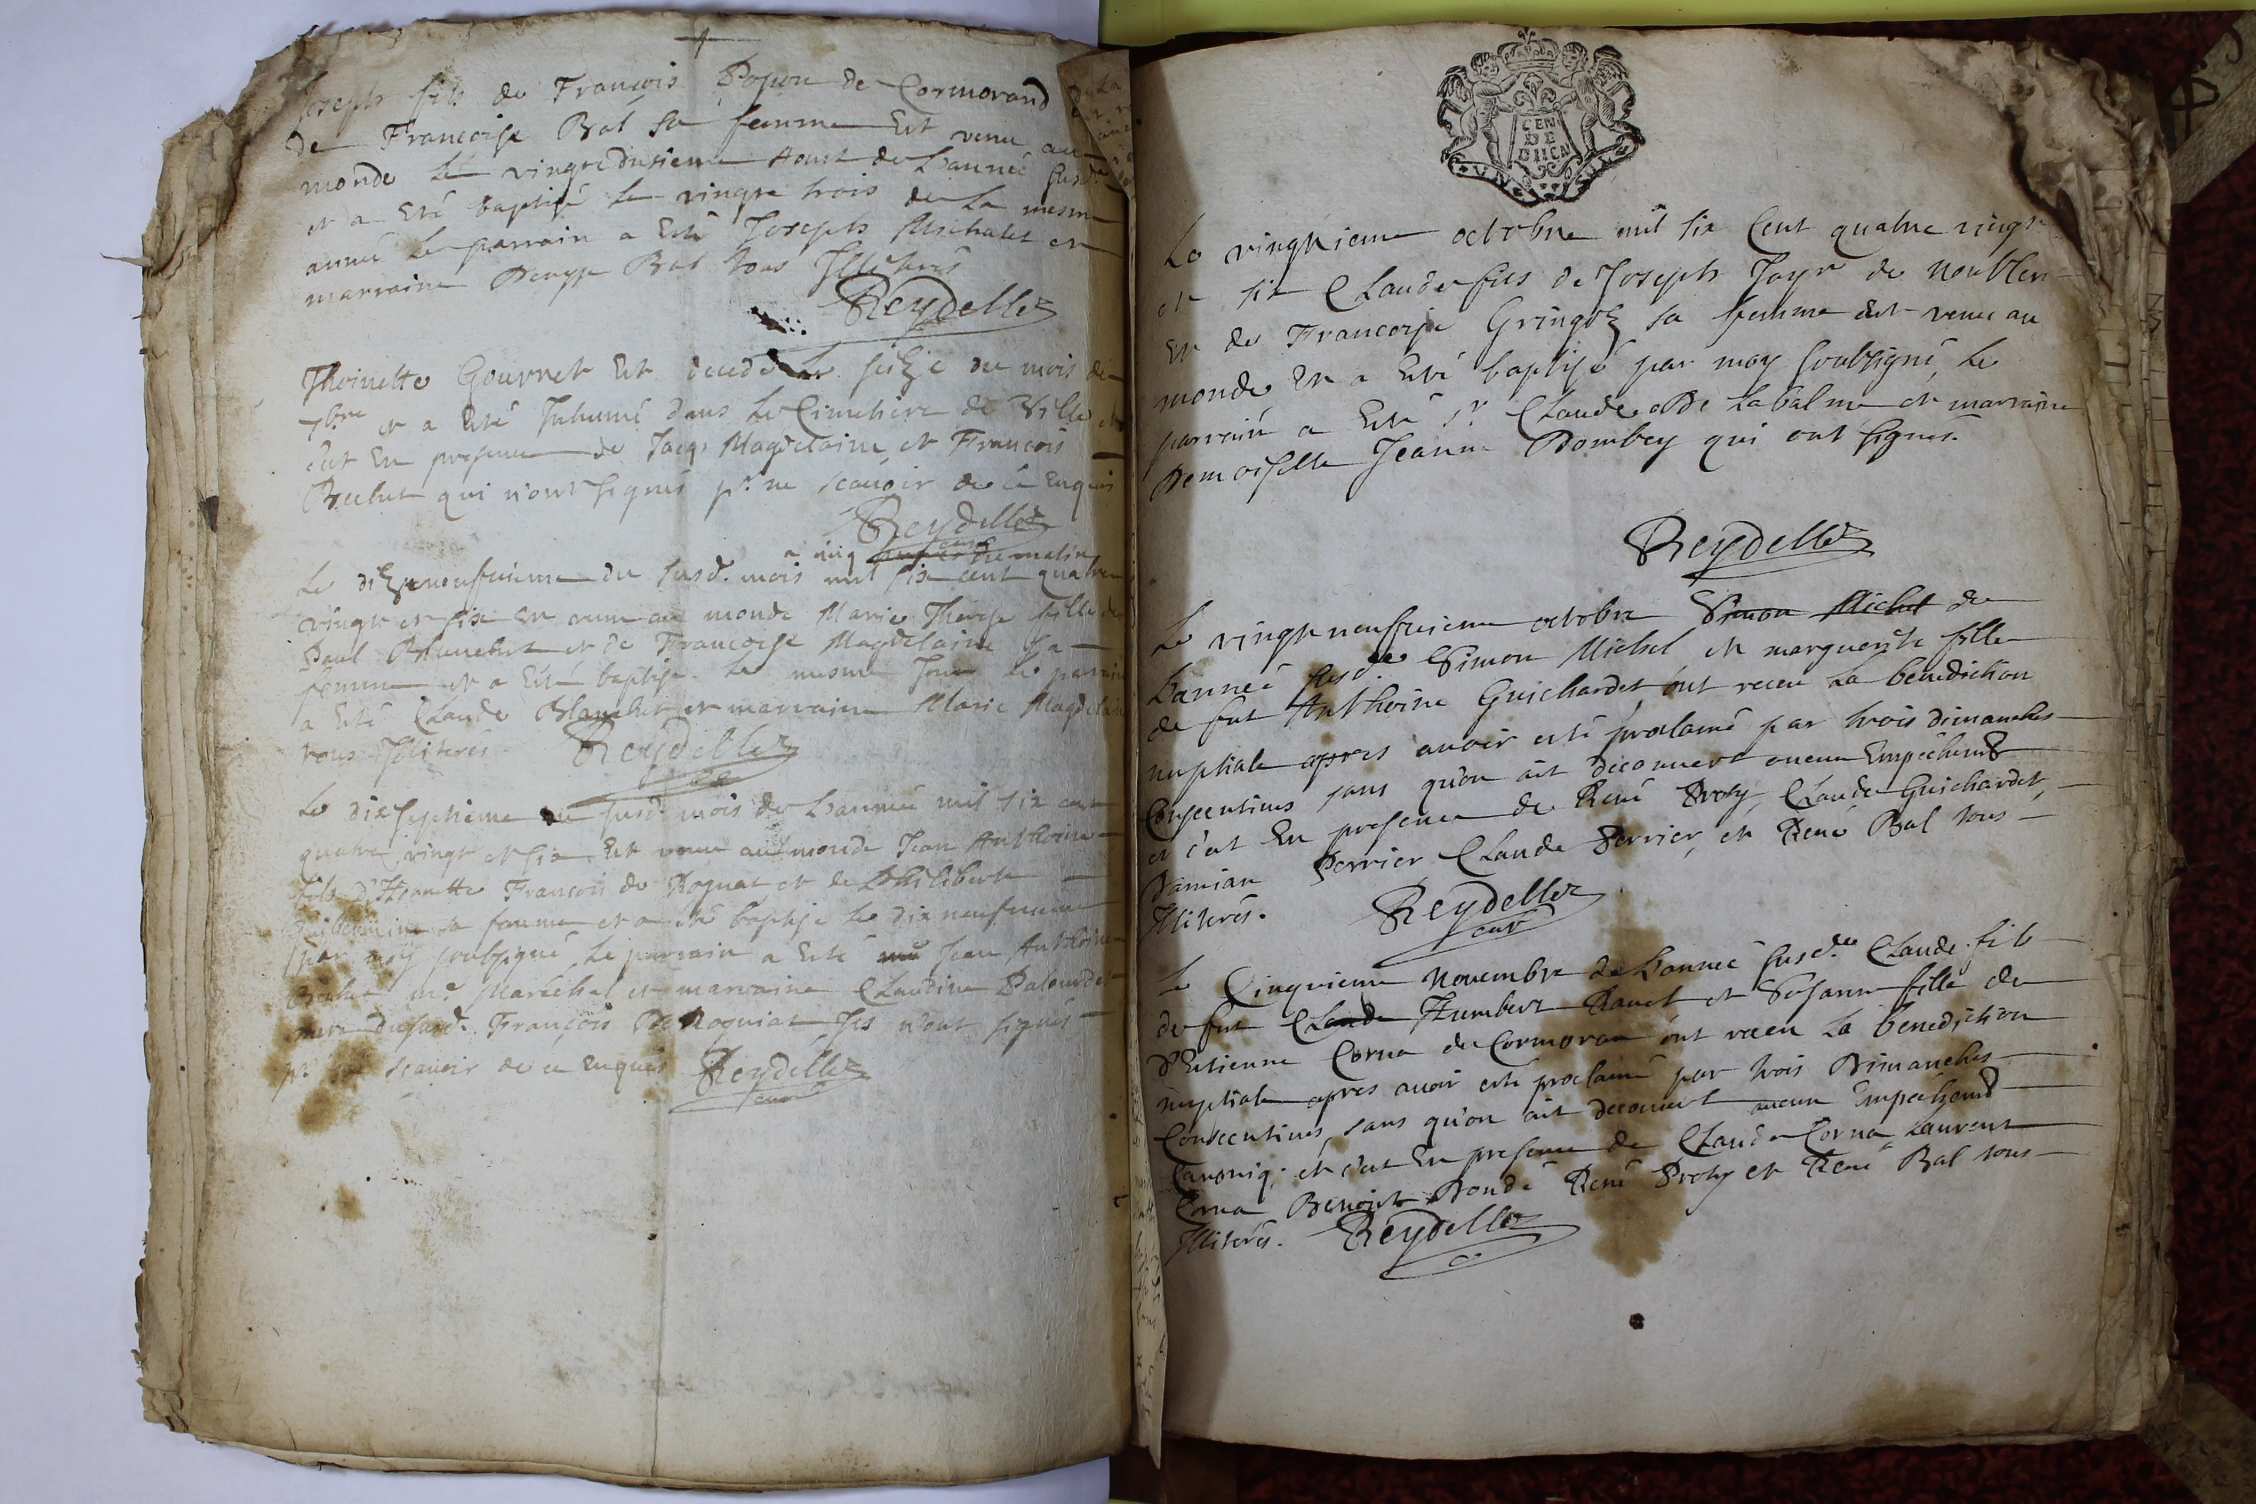 Joseph fils de François Popon de Cormorand
de Françoise Bal sa femme Est venu au
monde le vingtedusieme Aoust de L'année susd.e
et a Eté baptisé le vingte trois de La mesme
année Le parrain a Esté Joseph Michalet et
marraine Denyse Bal tous Illiterés
Reydellet
Thoinette Gourret Est decedé le seize du mois de
7bre et a Esté Inhumé dans Le Cimetiere de Ville et
c'est En presence de Jacq. Magdelaine et François
Bechut qui n'ont signés p.r ne scavoir de ce Enquis
Reydellet
a cinq du matin
Le dizeneuffuieme du susd. mois mil six cent quatre
vingt et six Est venu au monde Marie Therese fille de
Paul Blanchet et de Françoise Magdelaine sa
femme et a Esté baptisé Le mesme Jour Le parrain
a Esté Claude Blanchet et marraine Marie Magdelaine
tous Illiterés Reydellet
Le dixseptieme du susd. mois de L'année mil six cent
quatre vingt et six Est venu au monde Jean Anthoine
fils d' François de Roquat et de Philiberte
sa femme et a esté baptisé Le dix neufuieme
par moy soubsigné Le parrain a Esté Jean Anthoine
m.e Maréchal et marraine Claudine Palourdet
mere dususd. François De Roquiat Ils n'ont signés
p.r ne scavoir de ce Enquis Reydellet
curé
CEN DE DIICN
Le vingtieme octobre mil six Cent quatre vingt
et six Claude fils de Joseph Jayr de Noublen
Et de Françoise Gringoz sa femme Est venu au
monde Et a Esté baptisé par moy soubsigné, Le
parrain a Esté S.r Claude De La balme et marraine
Demoiselle Jeanne Dombey qui ont signés.
Reydellet
Le vingtneuffuieme octobre Simon Michel de
L'année susd.e Simon Michel et marguerite fille
de fut Anthoine Guichardet ont receu La benediction
nuptiale apres avoir esté proclamé par trois dimanches
Consecutives sans qu'on ait decouvert aucun Empechement
et c'est En presence de René Proty, Claude Guichardet,
Damian Perrier Claude Perrier, et René Bal tous
Illiterés. Reydellet
curé
Le Cinquieme Novembre de L'année susd.e Claude fils
de fut Claude Humbert Ravet et Susanne fille de
d'Estienne Corna de Cormoran ont receu La benediction
nuptiale apres avoir esté proclamé par trois Dimanches
Consecutives sans qu'on ait decouvert aucun Empechement
Canoniq; et c'est En presence de Claude Corna Laurent
Corna Benoist Bondé René Proty et René Bal tous
Illiterés. Reydellet